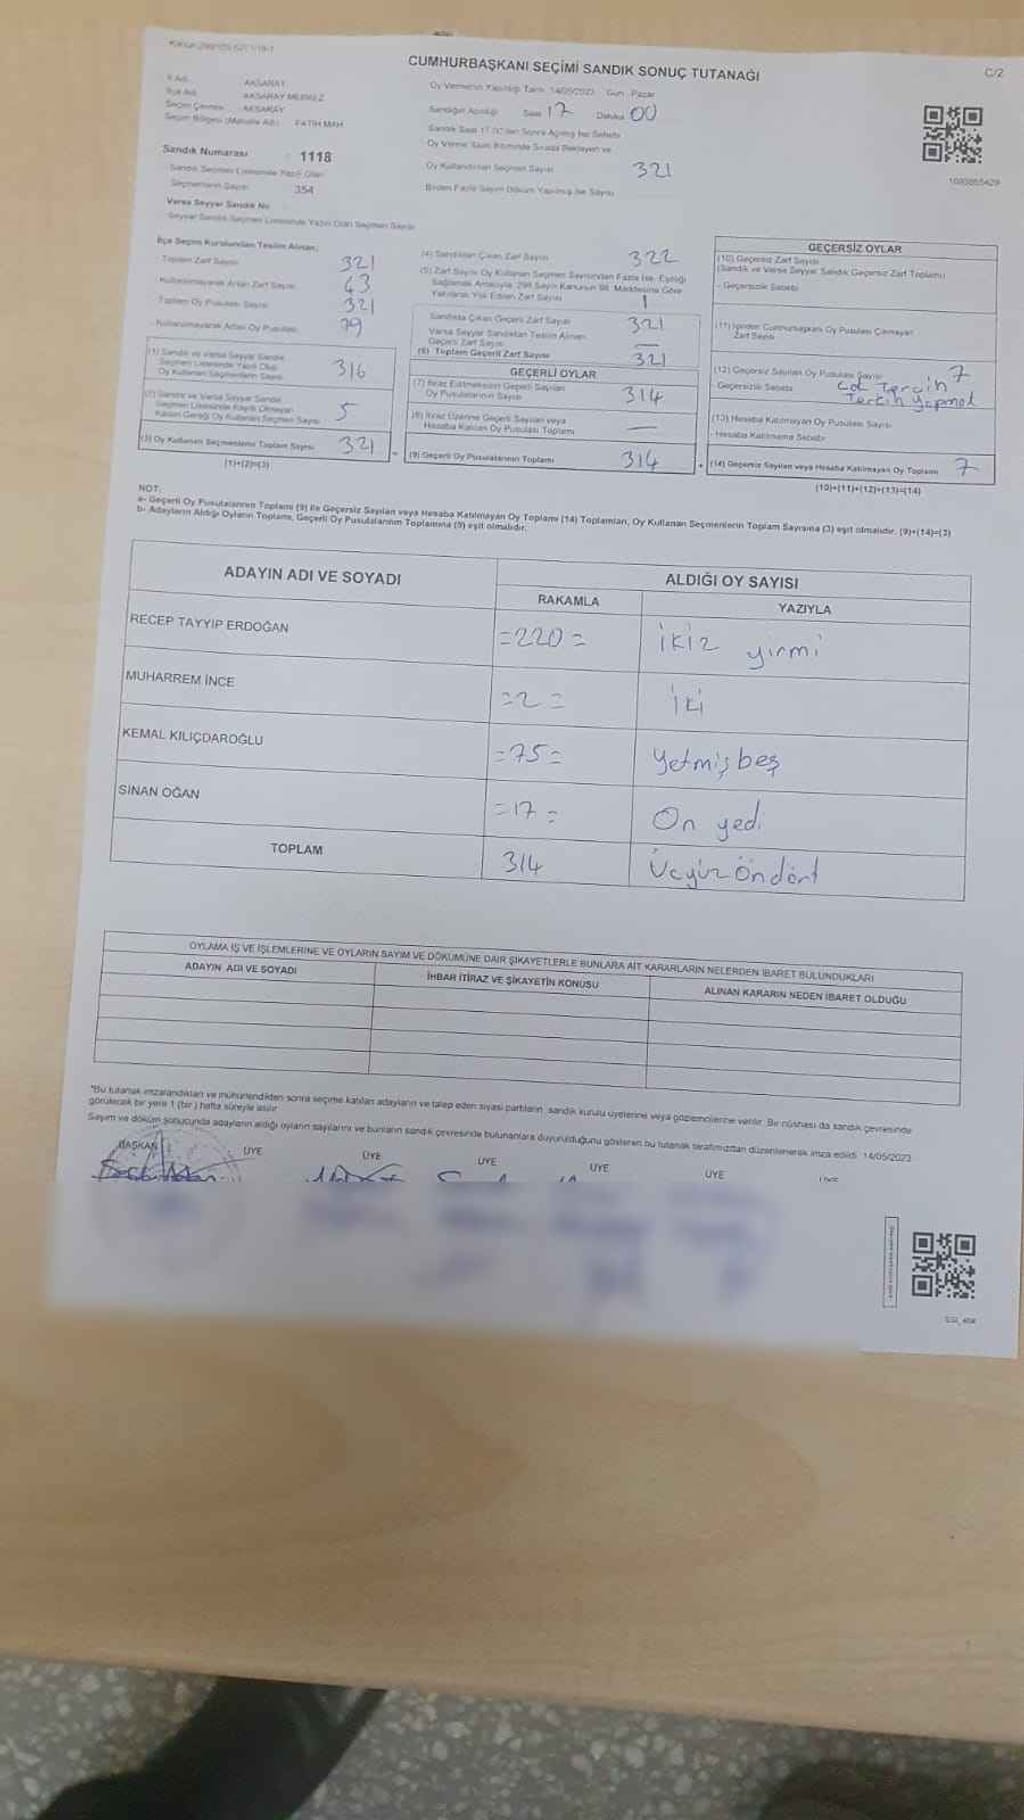 CUMHURBAŞKANI SEÇİMİ SANDIK SONUÇ TUTANAĞI
C/2
İl Adı AKSARAY
İlçe Adı AKSARAY MERKEZ
Seçim Çevresi AKSARAY
Seçim Bölgesi (Mahalle Adı) FATİH MAH
Sandık Numarası 1118
Sandık Seçmen Listesinde Yazılı Olan
Seçmenlerin Sayısı 354
Varsa Seyyar Sandık No
Seyyar Sandık Seçmen Listesinde Yazılı Olan Seçmen Sayısı
Oy Vermenin Yapıldığı Tarih 14/05/2023 Gün Pazar
Sandığın Açıldığı Saat 17 Dakika 00
Sandık Saat 17.00'den Sonra Açılmış İse Sebebi
Oy Kullandırılan Seçmen Sayısı 321
Birden Fazla Sayım Döküm Yapılmış İse Sayısı
1030855429
İlçe Seçim Kurulundan Teslim Alınan;
- Toplam Zarf Sayısı 321
- Kullanılmayarak Artan Zarf Sayısı 43
- Toplam Oy Pusulası Sayısı 321
- Kullanılmayarak Artan Oy Pusulası 79
(1) Sandık ve Varsa Seyyar Sandık
Seçmen Listesinde Yazılı Olup
Oy Kullanan Seçmenlerin Sayısı 316
(2) Sandık ve Varsa Seyyar Sandık
Seçmen Listesinde Kayıtlı Olmayan
Kanun Gereği Oy Kullanan Seçmen Sayısı 5
(3) Oy Kullanan Seçmenlerin Toplam Sayısı 321
(1)+(2)=(3)
(4) Sandıktan Çıkan Zarf Sayısı 322
(5) Zarf Sayısı Oy Kullanan Seçmen Sayısından Fazla İse, Eşitliği
Sağlamak Amacıyla, 298 Sayılı Kanunun 98. Maddesine Göre
Yakılarak Yok Edilen Zarf Sayısı 1
Sandıkta Çıkan Geçerli Zarf Sayısı 321
Varsa Seyyar Sandıktan Teslim Alınan
Geçerli Zarf Sayısı —
(6) Toplam Geçerli Zarf Sayısı 321
GEÇERLİ OYLAR
(7) İtiraz Edilmeksizin Geçerli Sayılan
Oy Pusulalarının Sayısı 314
(8) İtiraz Üzerine Geçerli Sayılan veya
Hesaba Katılan Oy Pusulası Toplamı —
(9) Geçerli Oy Pusulalarının Toplamı 314
GEÇERSİZ OYLAR
(10) Geçersiz Zarf Sayısı
(Sandık ve Varsa Seyyar Sandık Geçersiz Zarf Toplamı)
- Geçersizlik Sebebi
(11) İçinden Cumhurbaşkanı Oy Pusulası Çıkmayan
Zarf Sayısı
(12) Geçersiz Sayılan Oy Pusulası Sayısı 7
- Geçersizlik Sebebi
(13) Hesaba Katılmayan Oy Pusulası Sayısı
- Hesaba Katılmama Sebebi
(14) Geçersiz Sayılan veya Hesaba Katılmayan Oy Toplamı 7
(10)+(11)+(12)+(13)=(14)
NOT:
a- Geçerli Oy Pusulalarının Toplamı (9) ile Geçersiz Sayılan veya Hesaba Katılmayan Oy Toplamı (14) Toplamları, Oy Kullanan Seçmenlerin Toplam Sayısına (3) eşit olmalıdır. (9)+(14)=(3)
b- Adayların Aldığı Oyların Toplamı, Geçerli Oy Pusulalarının Toplamına (9) eşit olmalıdır.
ADAYIN ADI VE SOYADI
ALDIĞI OY SAYISI
RAKAMLA
YAZIYLA
RECEP TAYYİP ERDOĞAN =220= İKİZ yirmi
MUHARREM İNCE =2= İki
KEMAL KILIÇDAROĞLU =75= yetmiş beş
SİNAN OĞAN =17= On yedi
TOPLAM 314 Üçyüz öndört
OYLAMA İŞ VE İŞLEMLERİNE VE OYLARIN SAYIM VE DÖKÜMÜNE DAİR ŞİKAYETLERLE BUNLARA AİT KARARLARIN NELERDEN İBARET BULUNDUKLARI
ADAYIN ADI VE SOYADI
İHBAR İTİRAZ VE ŞİKAYETİN KONUSU
ALINAN KARARIN NEDEN İBARET OLDUĞU
*Bu tutanak imzalandıktan ve mühürlendikten sonra seçime katılan adayların ve talep eden siyasi partilerin, sandık kurulu üyelerine veya gözlemcilerine verilir. Bir nüshası da sandık çevresinde
görülecek bir yere 1 (bir) hafta süreyle asılır
Sayım ve döküm sonucunda adayların aldığı oyların sayılarını ve bunların sandık çevresinde bulunanlara duyurulduğunu gösteren bu tutanak tarafımızdan düzenlenerek imza edildi. 14/05/2023
BAŞKAN
ÜYE
ÜYE
ÜYE
ÜYE
ÜYE